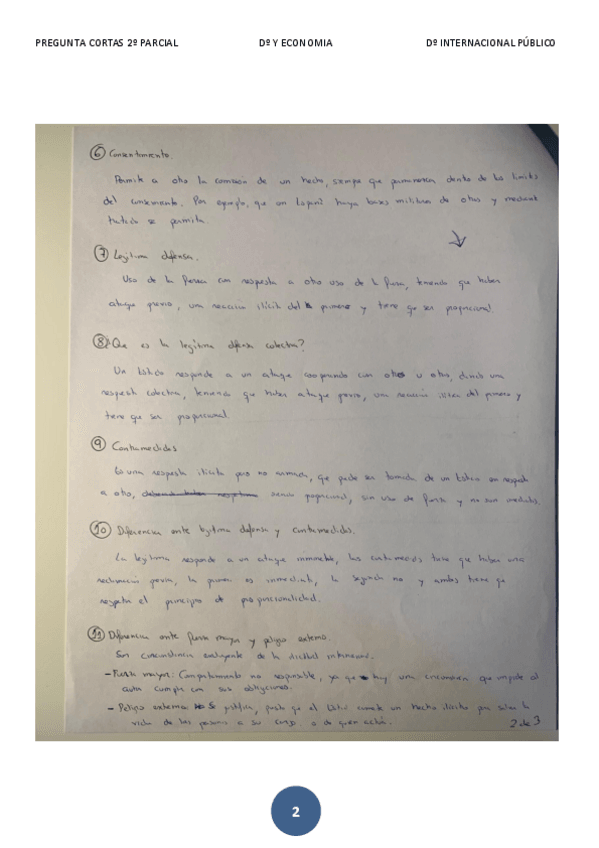 PREGUNTA CORTAS 2º PARCIAL Dº Y ECONOMIA Dº INTERNACIONAL PÚBLICO
6 Consentimiento.
Permite a otro la comisión de un hecho, siempre que permanezca dentro de los limites
del consentimiento. Por ejemplo, que en España haya bases militares de otros y mediante
tratado se permita.
7 Legítima defensa.
Uso de la fuerza con respuesta a otro uso de la fuerza, teniendo que haber
ataque previo, una reacción ilícita del primero y tiene que ser proporcional.
8 ¿Que es la legítima defensa colectiva?
Un Estado responde a un ataque cooperando con otro u otros, dando una
respuesta colectiva, teniendo que haber ataque previo, una reacción ilícita del primero y
tiene que ser proporcional
9 Contramedidas
Es una respuesta ilícita pero no armada, que puede ser tomada de un Estado en respuesta
a otro, siendo proporcional, sin uso de fuerza y no son
10 Diferencias entre legítima defensa y contramedidas.
La legítima responde a un ataque inminente, las contramedidas tiene que haber una
reclamación previa, la primera es inmediata, la segunda no y ambas tiene que
respetar el principio de proporcionalidad.
11 Diferencias entre fuerza mayor y peligro extremo.
Son circunstancias excluyente de la ilicitud internacional.
- Fuerza mayor: Comportamiento no responsable, ya que hay una circunstancia que impide al
autor cumplir con sus obligaciones.
- Peligro extremo: Se justifica, puesto que el Estado comete un hecho ilícito para salvar la
vida de las personas a su cargo o de quien actúa.
2 de 3
2